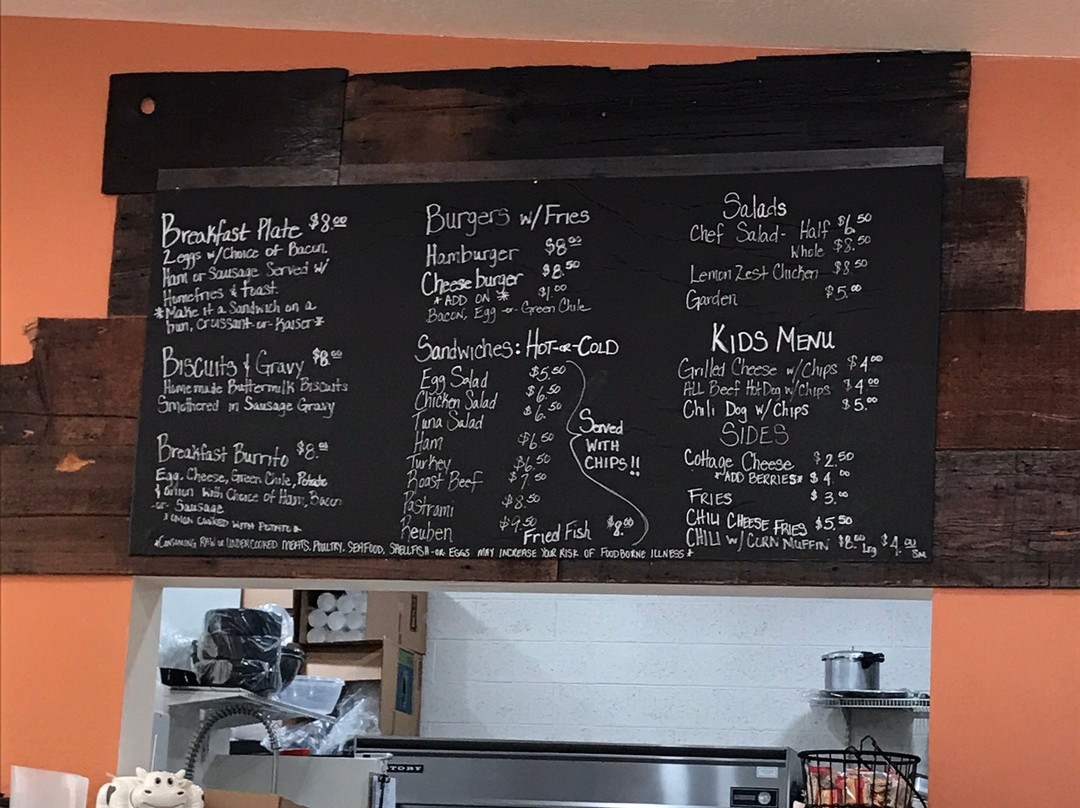 Breakfast Plate $8.00
2 eggs w/Choice of Bacon
Ham or Sausage Served w/
Homefries & toast.
*Make it a Sandwich on a
bun, Cruissant or Kaiser*
Biscuits & Gravy $8.00
Homemade Buttermilk Biscuits
Smothered in Sausage Gravy
Breakfast Burrito $8.00
Egg, Cheese, Green Chile, Potato
& onion with Choice of Ham, Bacon
-or- Sausage
*ONION COOKED WITH POTATO*
Burgers w/Fries
Hamburger $8.00
Cheeseburger $8.50
*ADD ON* $1.00
Bacon, Egg -or- Green Chile
Sandwiches: HOT-or-COLD
Egg Salad $5.50
Chicken Salad $6.50
Tuna Salad $6.50
Ham $6.50
Turkey $6.50
Roast Beef $7.50
Pastrami $8.50
Reuben $9.50
Served
WITH
CHIPS!!
Fried Fish $8.00
Salads
Chef Salad- Half $6.50
Whole $8.50
Lemon Zest Chicken $8.50
Garden $5.00
KIDS MENU
Grilled Cheese w/Chips $4.00
ALL Beef Hot Dog w/Chips $4.00
Chili Dog w/Chips $5.00
SIDES
Cottage Cheese $2.50
*ADD BERRIES* $4.00
FRIES $3.00
CHILI CHEESE FRIES $5.50
CHILI w/ CORN MUFFIN $8.00 Lrg $4.00 Sm
*CONSUMING RAW or UNDERCOOKED MEATS, POULTRY, SEAFOOD, SHELLFISH -or- EGGS MAY INCREASE YOUR RISK OF FOODBORNE ILLNESS*